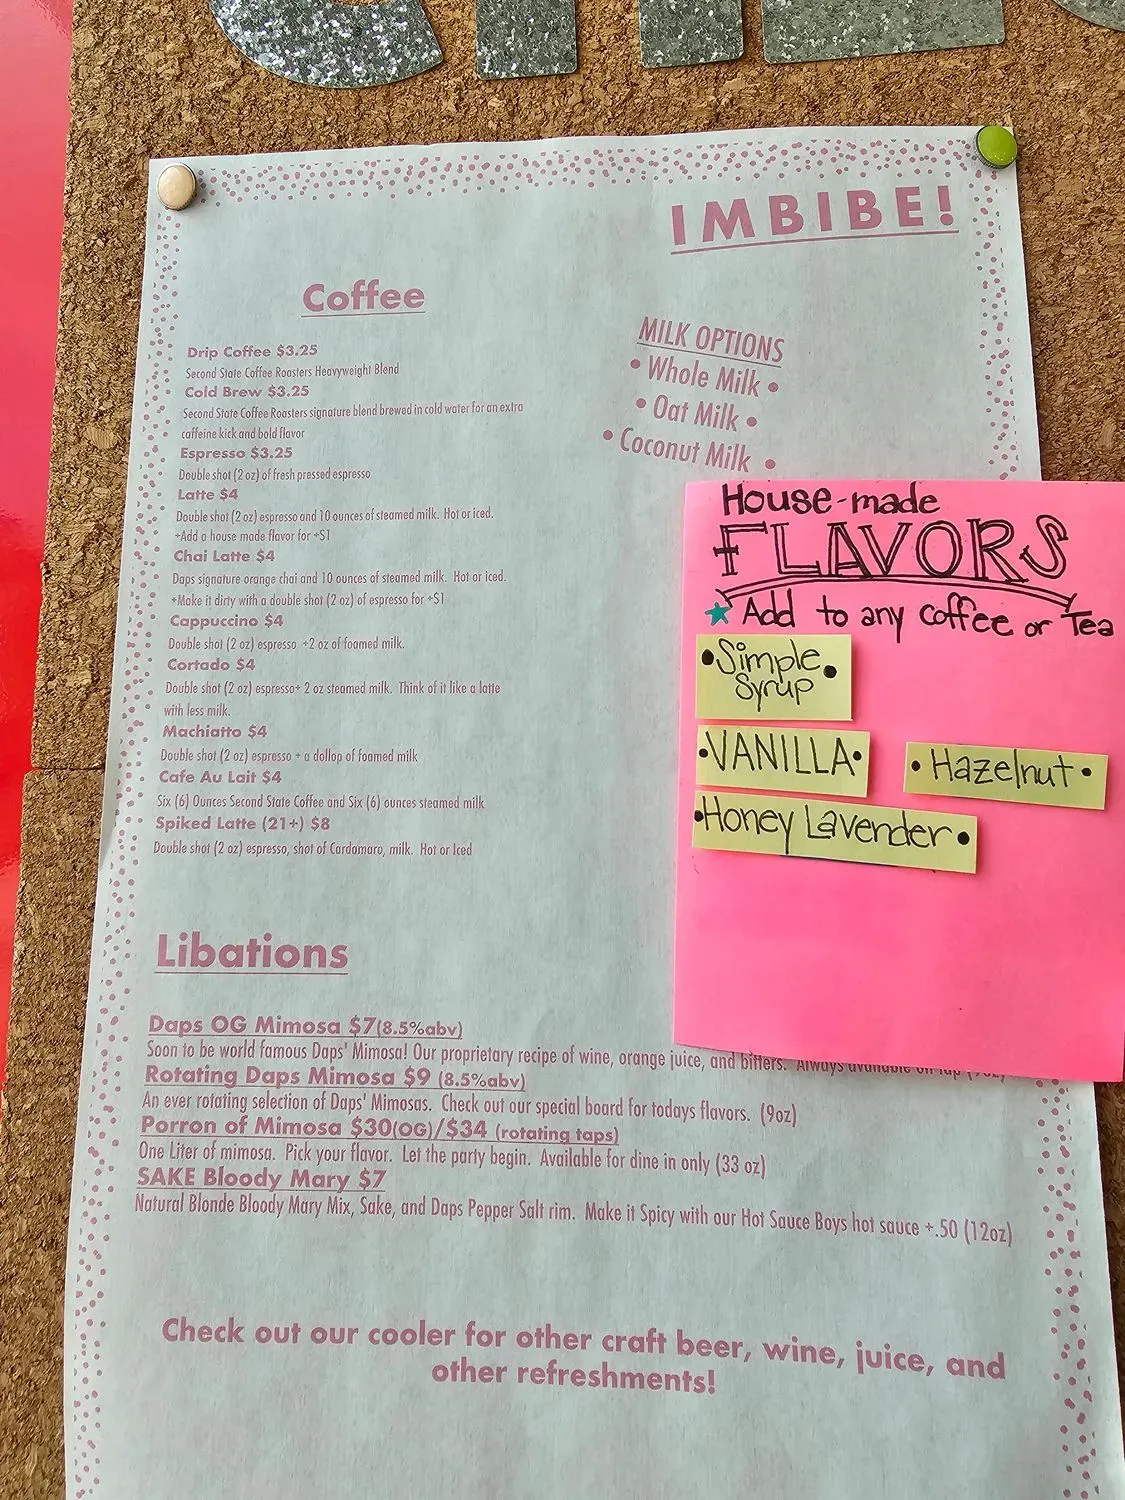 IMBIBE!
Coffee
Drip Coffee $3.25
Second State Coffee Roasters Heavyweight Blend
Cold Brew $3.25
Second State Coffee Roasters signature blend brewed in cold water for an extra
caffeine kick and bold flavor
Espresso $3.25
Double shot (2 oz) of fresh pressed espresso
Latte $4
Double shot (2 oz) espresso and 10 ounces of steamed milk. Hot or iced.
+Add a house made flavor for +$1
Chai Latte $4
Daps signature orange chai and 10 ounces of steamed milk. Hot or iced.
+Make it dirty with a double shot (2 oz) of espresso for +$1
Cappuccino $4
Double shot (2 oz) espresso +2 oz of foamed milk.
Cortado $4
Double shot (2 oz) espresso+ 2 oz steamed milk. Think of it like a latte
with less milk.
Machiatto $4
Double shot (2 oz) espresso + a dollop of foamed milk
Cafe Au Lait $4
Six (6) Ounces Second State Coffee and Six (6) ounces steamed milk
Spiked Latte (21+) $8
Double shot (2 oz) espresso, shot of Cardamaro, milk. Hot or Iced
MILK OPTIONS
• Whole Milk •
• Oat Milk •
• Coconut Milk •
House-made
FLAVORS
★ Add to any coffee or Tea
• Simple •
Syrup
• VANILLA •
• Hazelnut •
• Honey Lavender •
Libations
Daps OG Mimosa $7(8.5%abv)
Soon to be world famous Daps' Mimosa! Our proprietary recipe of wine, orange juice, and bitters. Always available on tap (9oz)
Rotating Daps Mimosa $9 (8.5%abv)
An ever rotating selection of Daps' Mimosas. Check out our special board for todays flavors. (9oz)
Porron of Mimosa $30(OG)/$34 (rotating taps)
One Liter of mimosa. Pick your flavor. Let the party begin. Available for dine in only (33 oz)
SAKE Bloody Mary $7
Natural Blonde Bloody Mary Mix, Sake, and Daps Pepper Salt rim. Make it Spicy with our Hot Sauce Boys hot sauce +.50 (12oz)
Check out our cooler for other craft beer, wine, juice, and
other refreshments!